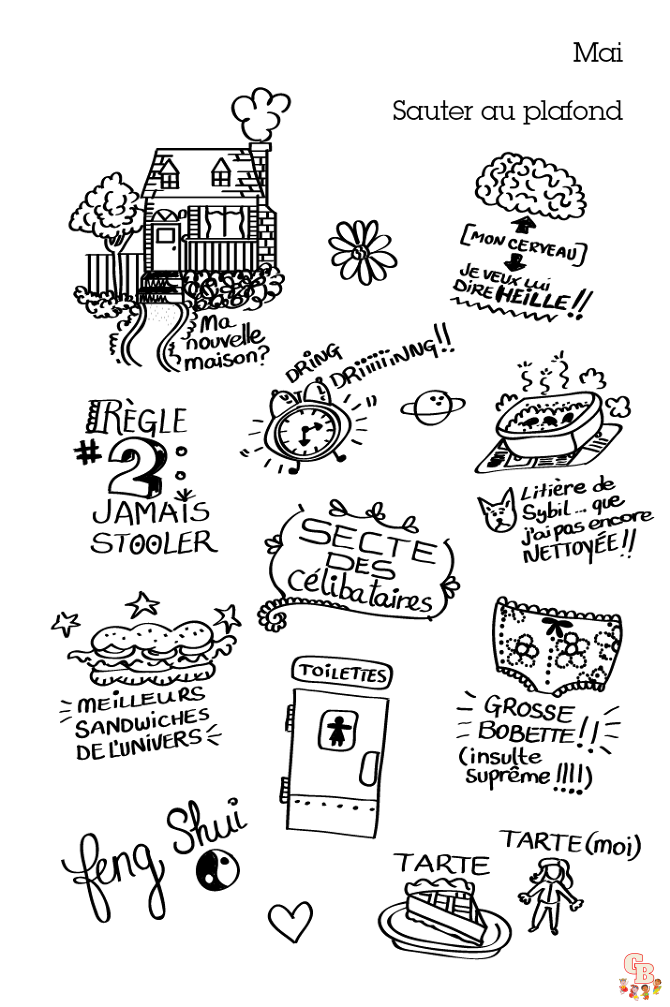 Mai
Sauter au plafond
[MON CERVEAU]
JE VEUX LUI
DIRE HEILLE!!
Ma
nouvelle
maison?
DRING
DRiiiiiiNNG!!
RÈGLE
#2:
JAMAIS
STOOLER
Litière de
Sybil... que
j'ai pas encore
NETTOYÉE!!
SECTE
DES
Célibataires
MEILLEURS
SANDWICHES
DE L'UNIVERS
TOILETTES
GROSSE
BOBETTE!!
(insulte
suprême!!!!)
feng Shui
TARTE
TARTE(moi)
GB